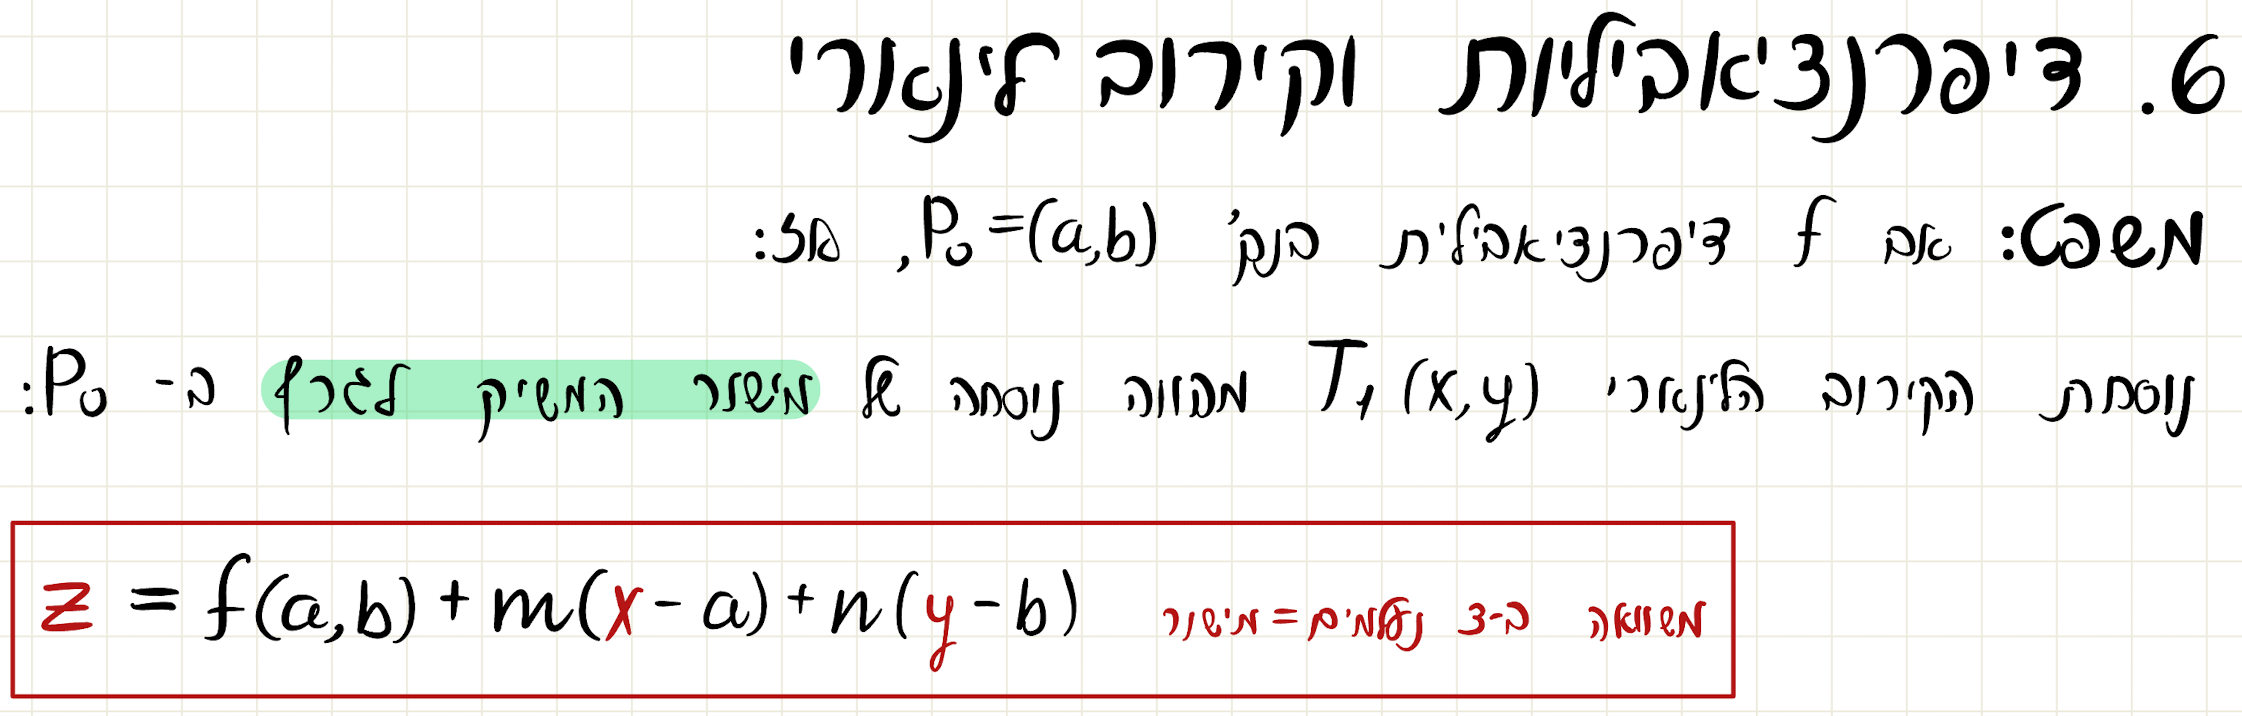 6. דיפרנציאביליות וקירוב לינארי
משפט: אם f דיפרנציאבילית בנק' P₀=(a,b), אז:
נוסחת הקירוב הלינארי T₁(x,y) מהווה נוסחה של מישור המשיק לגרף ב- P₀:
z = f(a,b) + m(x-a) + n(y-b) משוואה ב-3 נעלמים = מישור